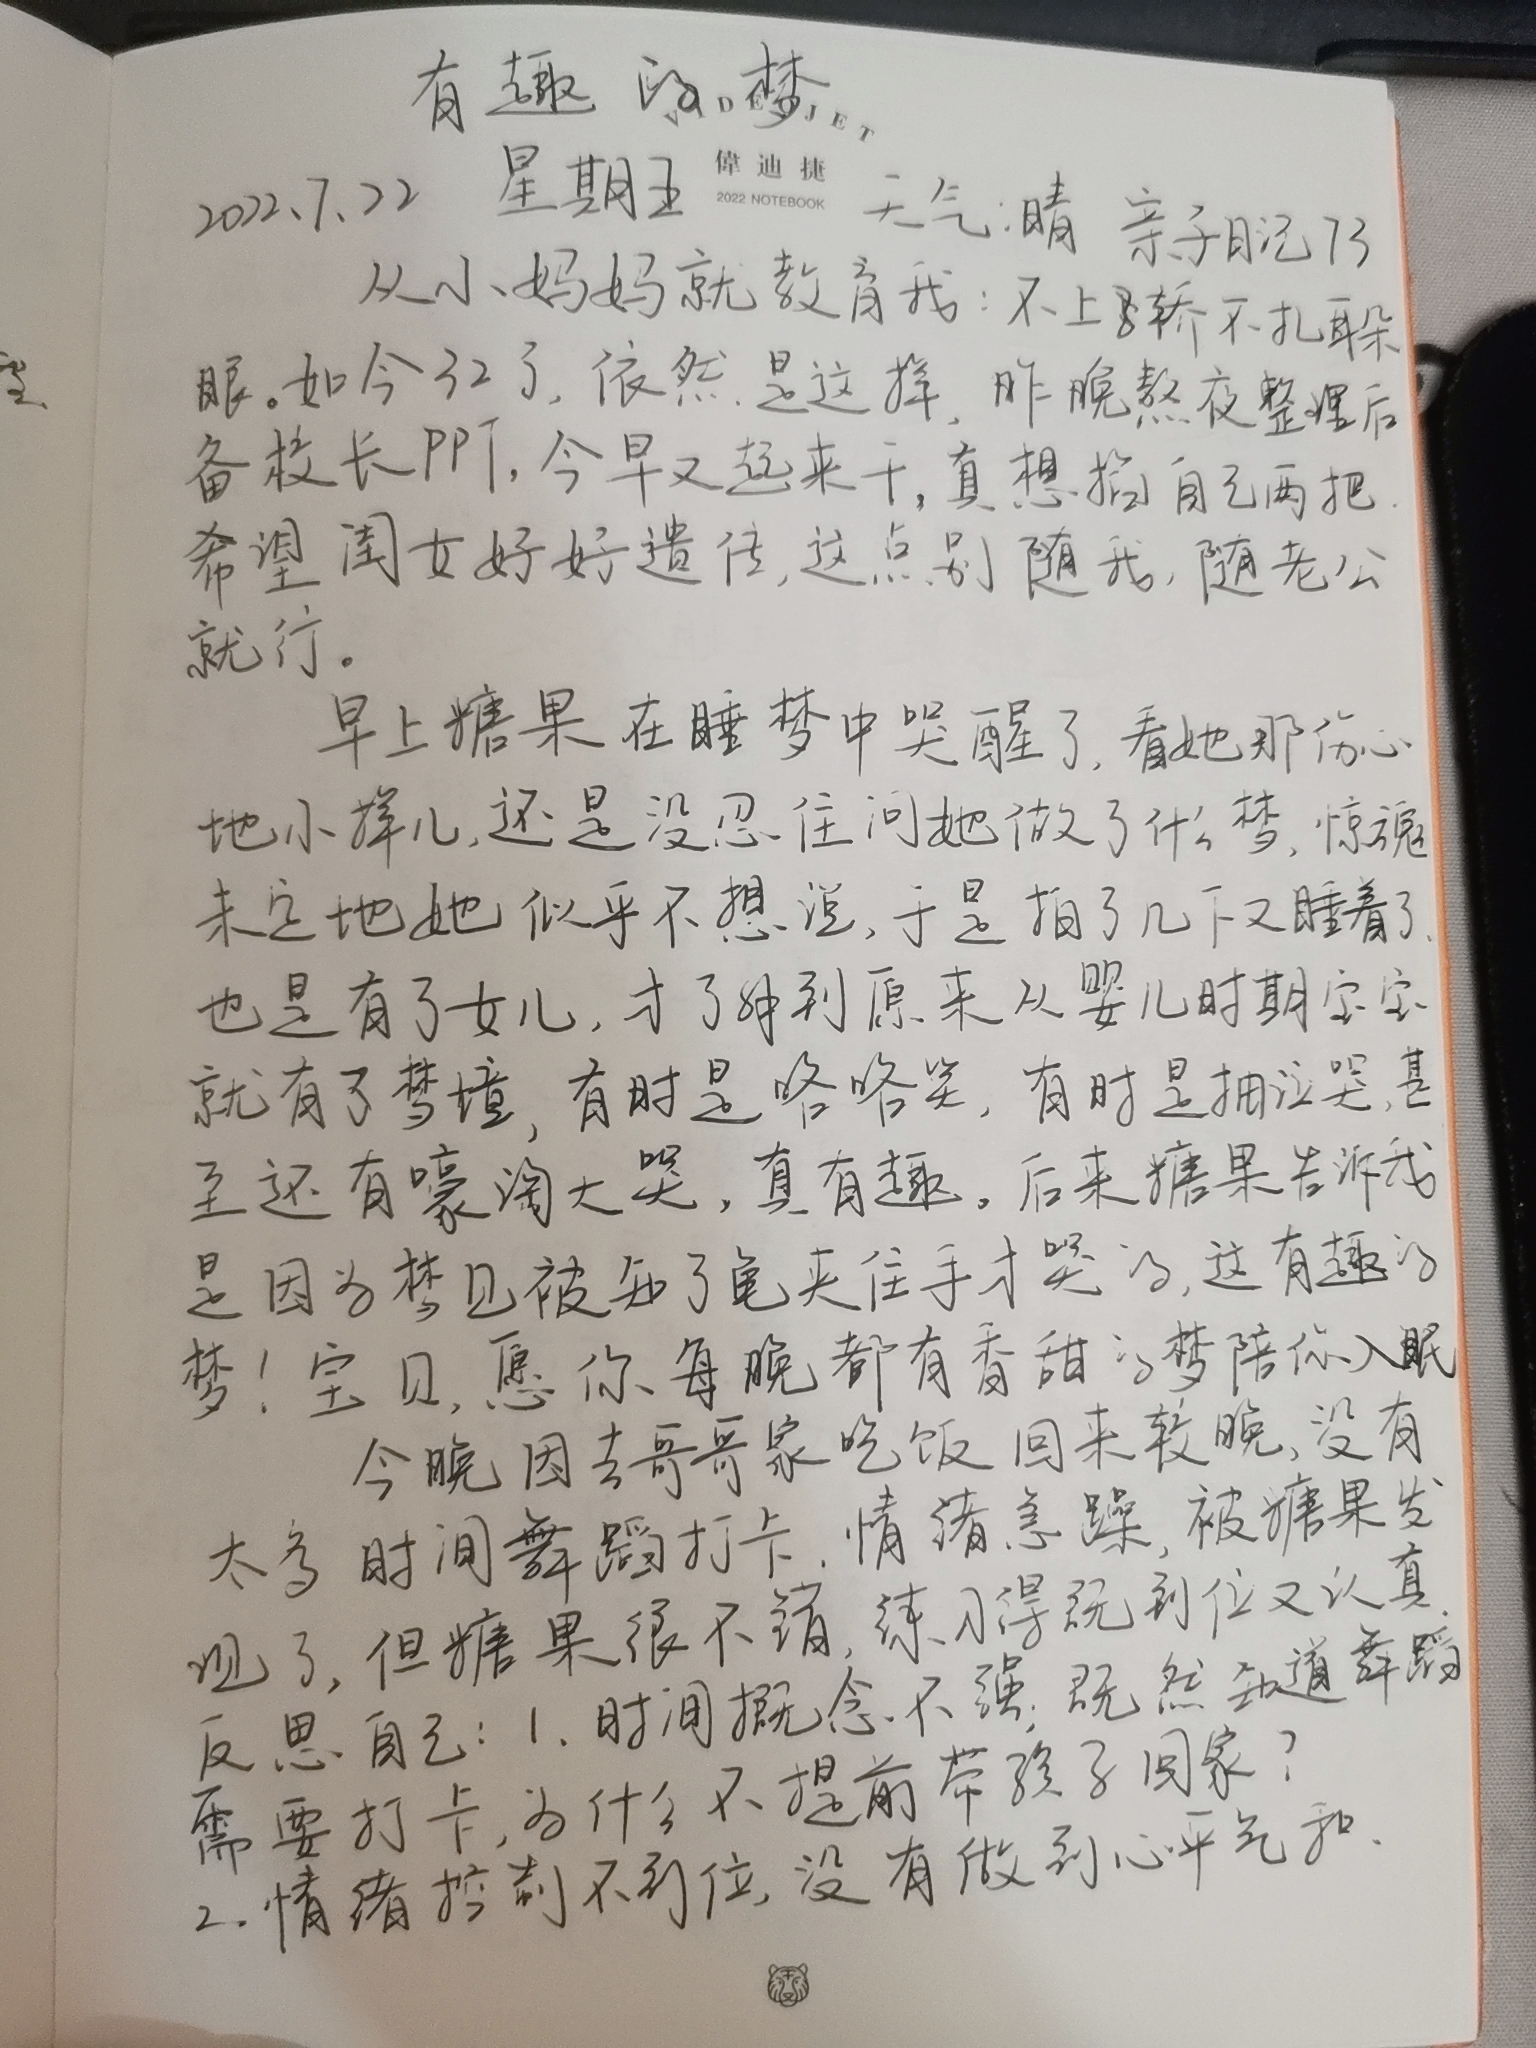 有趣的梦
VIDEOJET
偉迪捷
2022 NOTEBOOK
2022、7、22 星期五 天气:晴 亲子日记73
从小妈妈就教育我:不上轿不扎耳朵
眼。如今32了,依然是这样,昨晚熬夜整理后
备校长PPT,今早又起来干,真想掐自己两把.
希望闺女好好遗传,这点别随我,随老公
就行。
早上糖果在睡梦中哭醒了,看她那伤心
地小样儿,还是没忍住问她做了什么梦,惊魂
未定地她似乎不想说,于是拍了几下又睡着了.
也是有了女儿,才了解到原来从婴儿时期宝宝
就有了梦境,有时是咯咯笑,有时是抽泣哭,甚
至还有嚎淘大哭,真有趣。后来糖果告诉我
是因为梦见被知了龟夹住手才哭的,这有趣的
梦!宝贝,愿你每晚都有香甜的梦陪你入眠
今晚因去哥哥家吃饭回来较晚,没有
太多时间舞蹈打卡,情绪急躁,被糖果发
现了,但糖果很不错,练习得既到位又认真.
反思自己:1.时间概念不强,既然知道舞蹈
需要打卡,为什么不提前带孩子回家?
2.情绪控制不到位,没有做到心平气和.